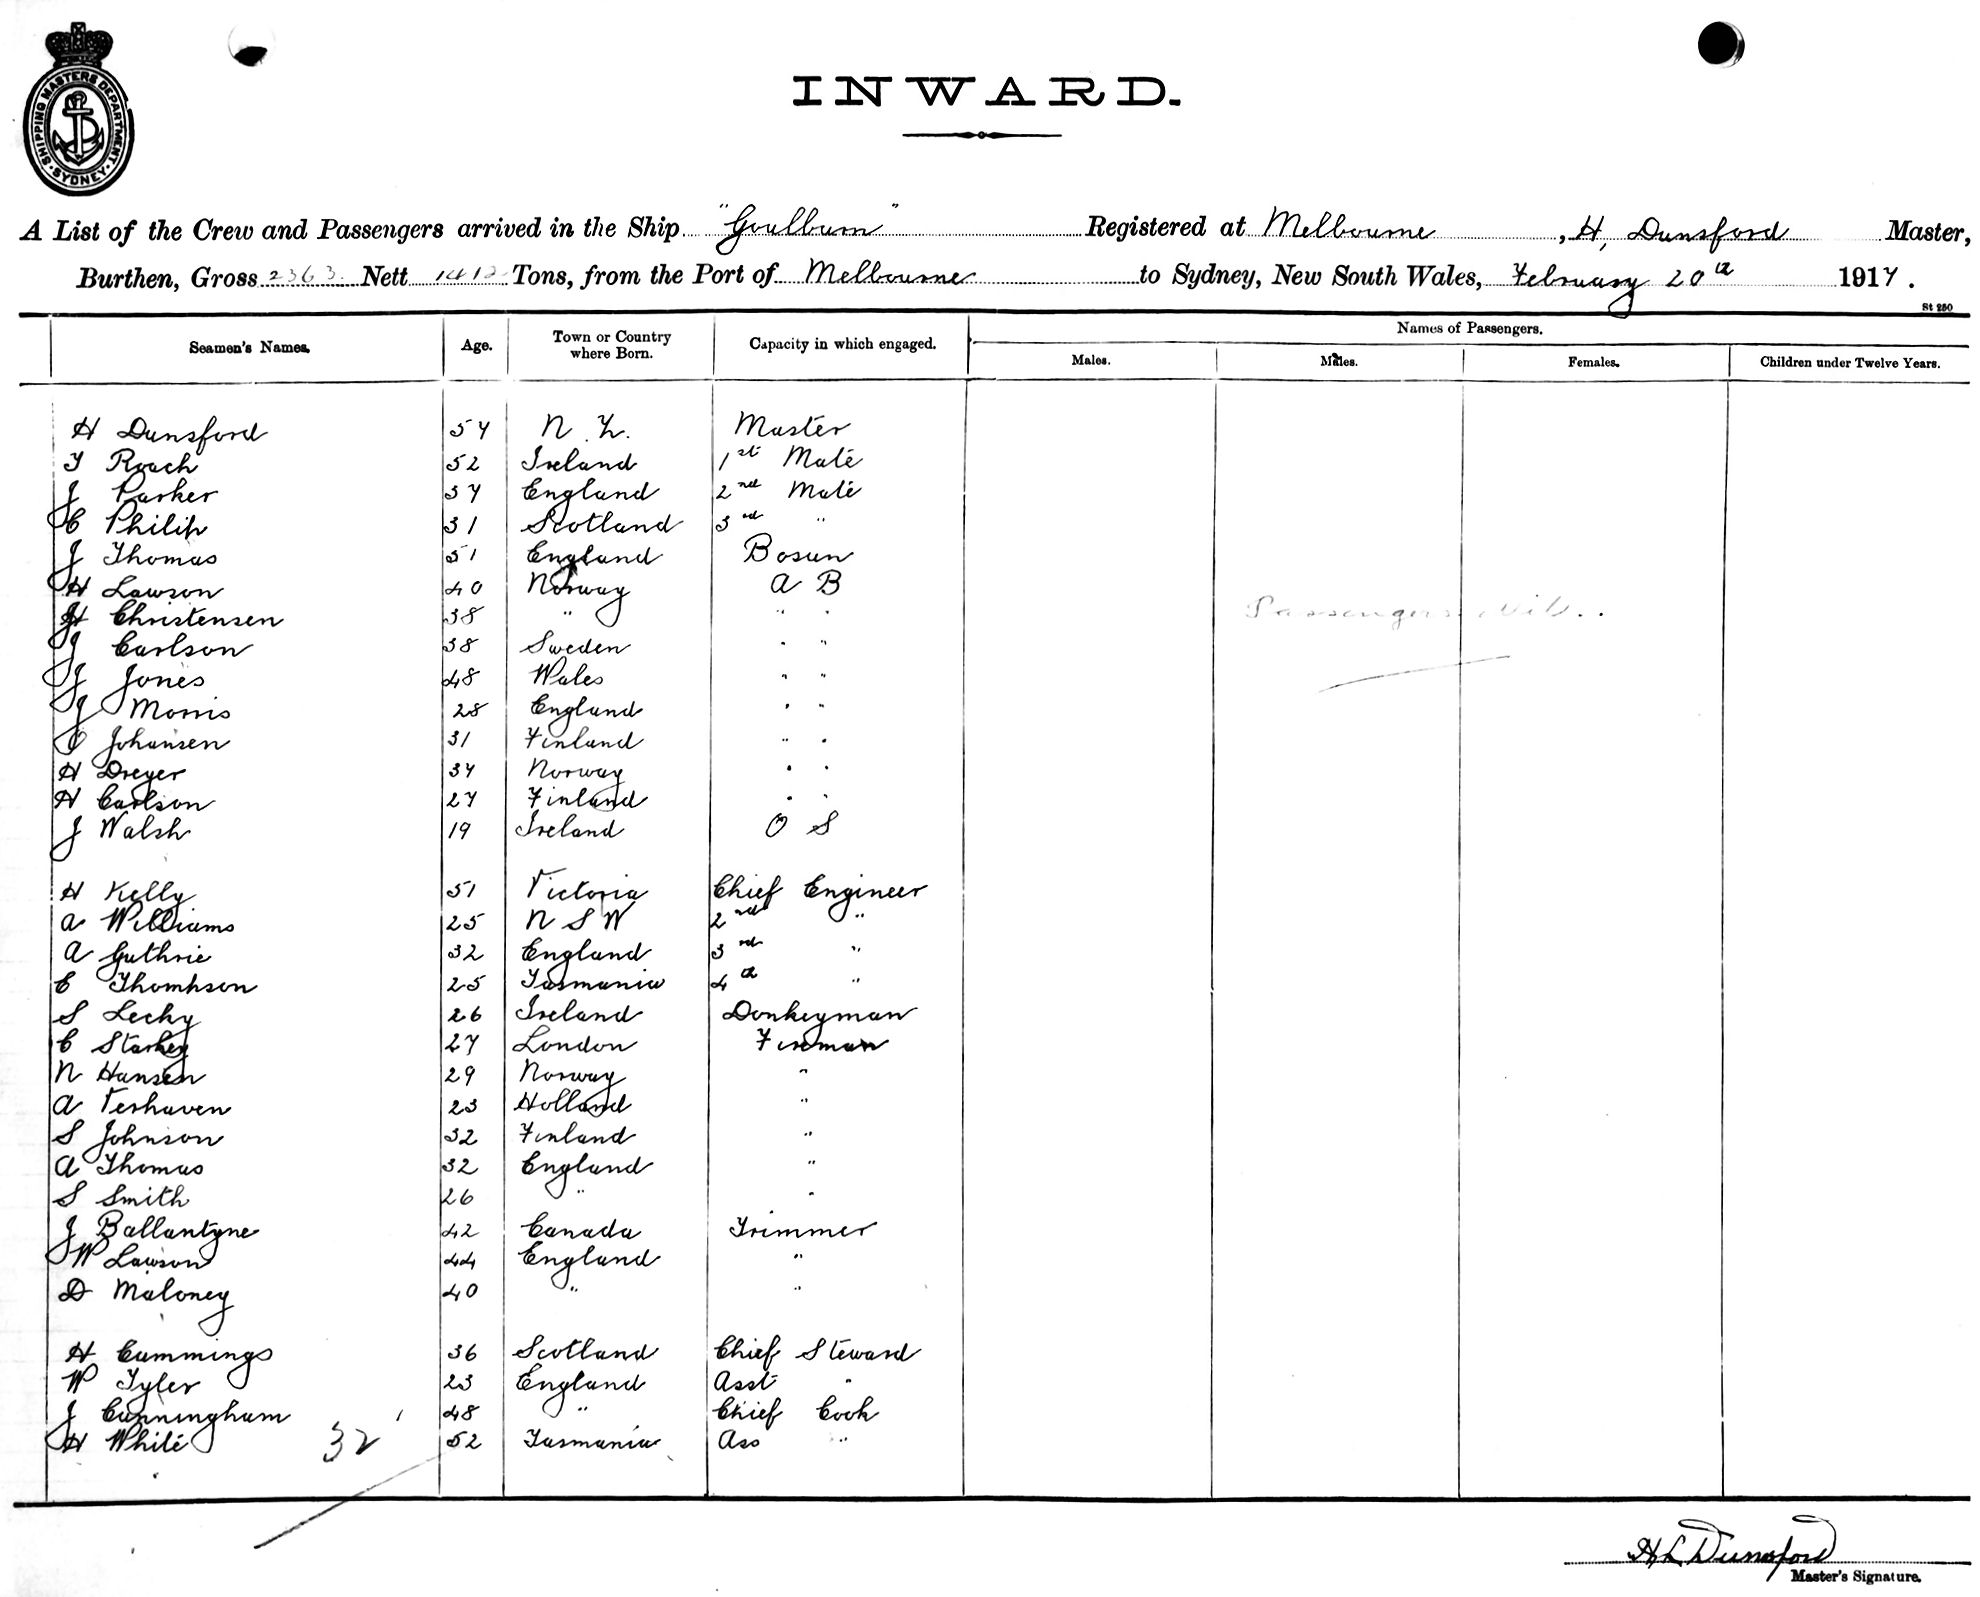 SHIPPING MASTERS DEPARTMENT
SYDNEY
INWARD.
A List of the Crew and Passengers arrived in the Ship "Goulburn" Registered at Melbourne, H, Dunsford Master,
Burthen, Gross 2363 Nett 1412 Tons, from the Port of Melbourne to Sydney, New South Wales, February 20th 1917.
St 250
Seamen's Names. Age. Town or Country where Born. Capacity in which engaged. Names of Passengers.
Males. Males. Females. Children under Twelve Years.
H Dunsford 57 N.Z. Master
T Roach 52 Ireland 1st Mate
J Parker 37 England 2nd Mate
C Philip 31 Scotland 3rd "
J Thomas 51 England Bosun
H Lawson 40 Norway A B
H Christensen 38 " " "
J Carlson 38 Sweden " "
J Jones 48 Wales " "
J Morris 28 England " "
O Johansen 31 Finland " "
H Dreyer 37 Norway " "
H Carlson 27 Finland " "
J Walsh 19 Ireland O S
Passengers Nil..
H Kelly 51 Victoria Chief Engineer
A Williams 25 N S W 2nd "
A Guthrie 32 England 3rd "
C Thompson 25 Tasmania 4th "
S Lecky 26 Ireland Donkeyman
C Starkey 27 London Fireman
N Hansen 29 Norway "
A Verhaven 23 Holland "
S Johnson 32 Finland "
A Thomas 32 England "
S Smith 26 " "
J Ballantyne 42 Canada Trimmer
W Lawson 44 England "
D Maloney 40 " "
H Cummings 36 Scotland Chief Steward
W Tyler 23 England Asst "
J Cunningham 48 " Chief Cook
H White 52 Tasmania Ass "
32
H L Dunsford
Master's Signature.